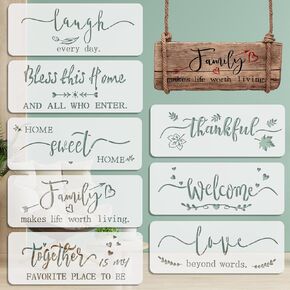 laugh
every day.
Bless this Home
AND ALL WHO ENTER.
HOME
sweet
HOME
Family
makes life worth living.
Together is my
FAVORITE PLACE TO BE
Family
makes life worth living.
thankful
Welcome
love
beyond words.